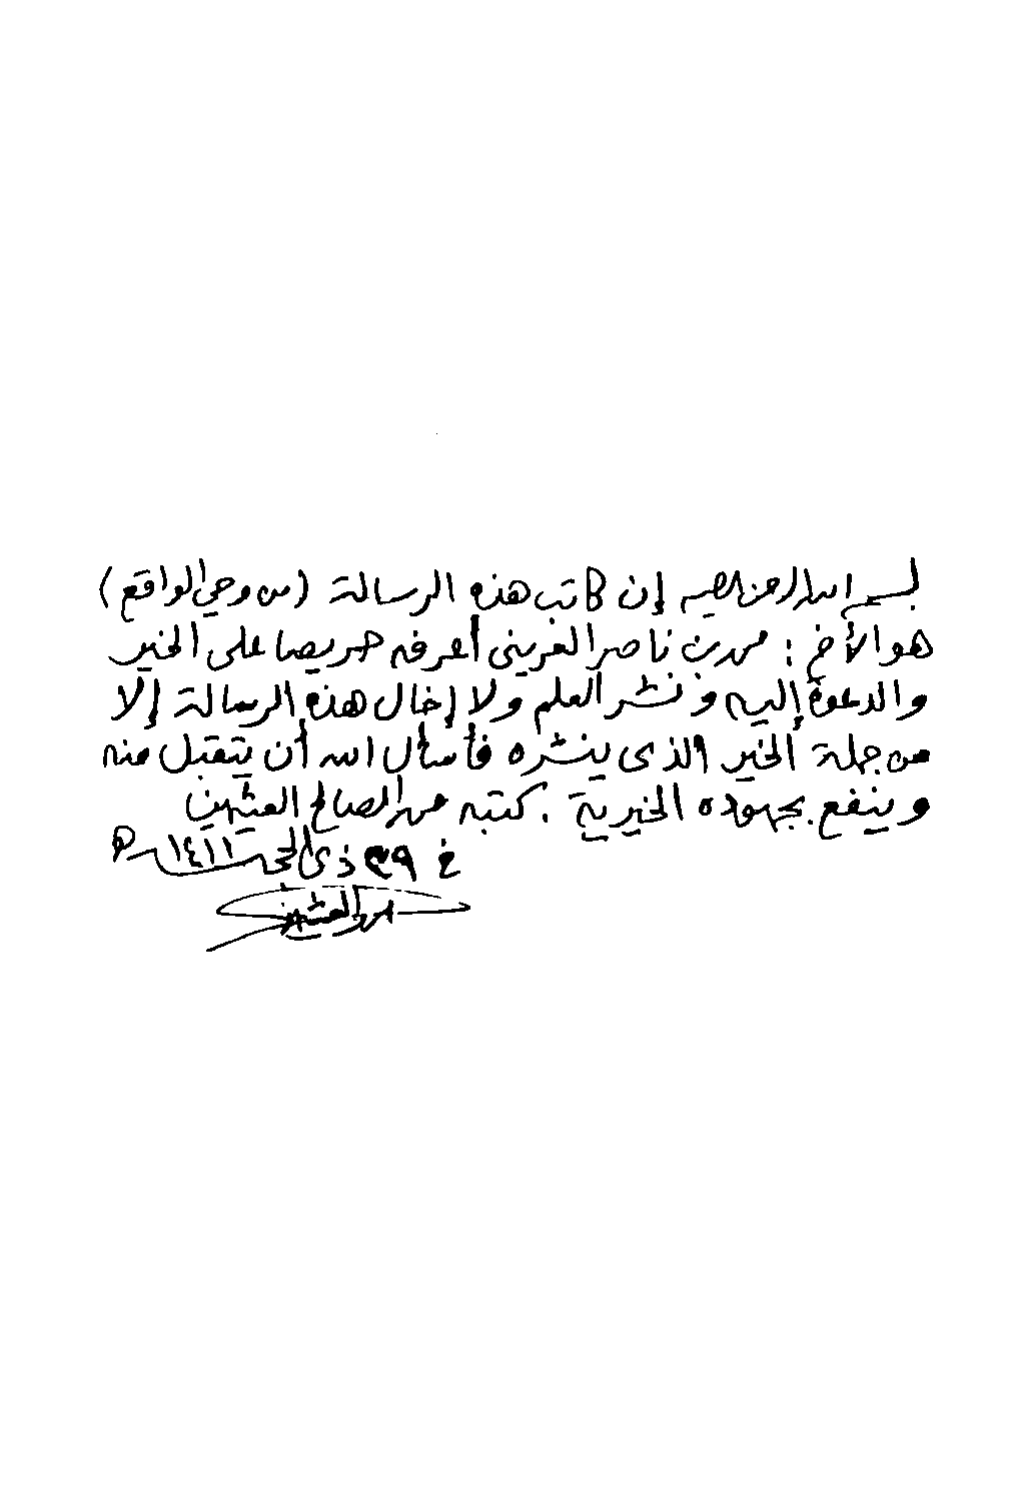 بسم الله الرحمن الرحيم إن كاتب هذه الرسالة (من وحي الواقع)
هو الأخ : محمد بن ناصر العريني أعرفه حريصا على الخير
والدعوة إليه ونشر العلم ولا إخال هذه الرسالة إلا
من جملة الخير الذى ينشره فأسأل الله أن يتقبل منه
وينفع بجهوده الخيرية . كتبه محمد الصالح العثيمين
في ٢٩ ذى الحجة ١٤١١ هـ
محمد العثيمين